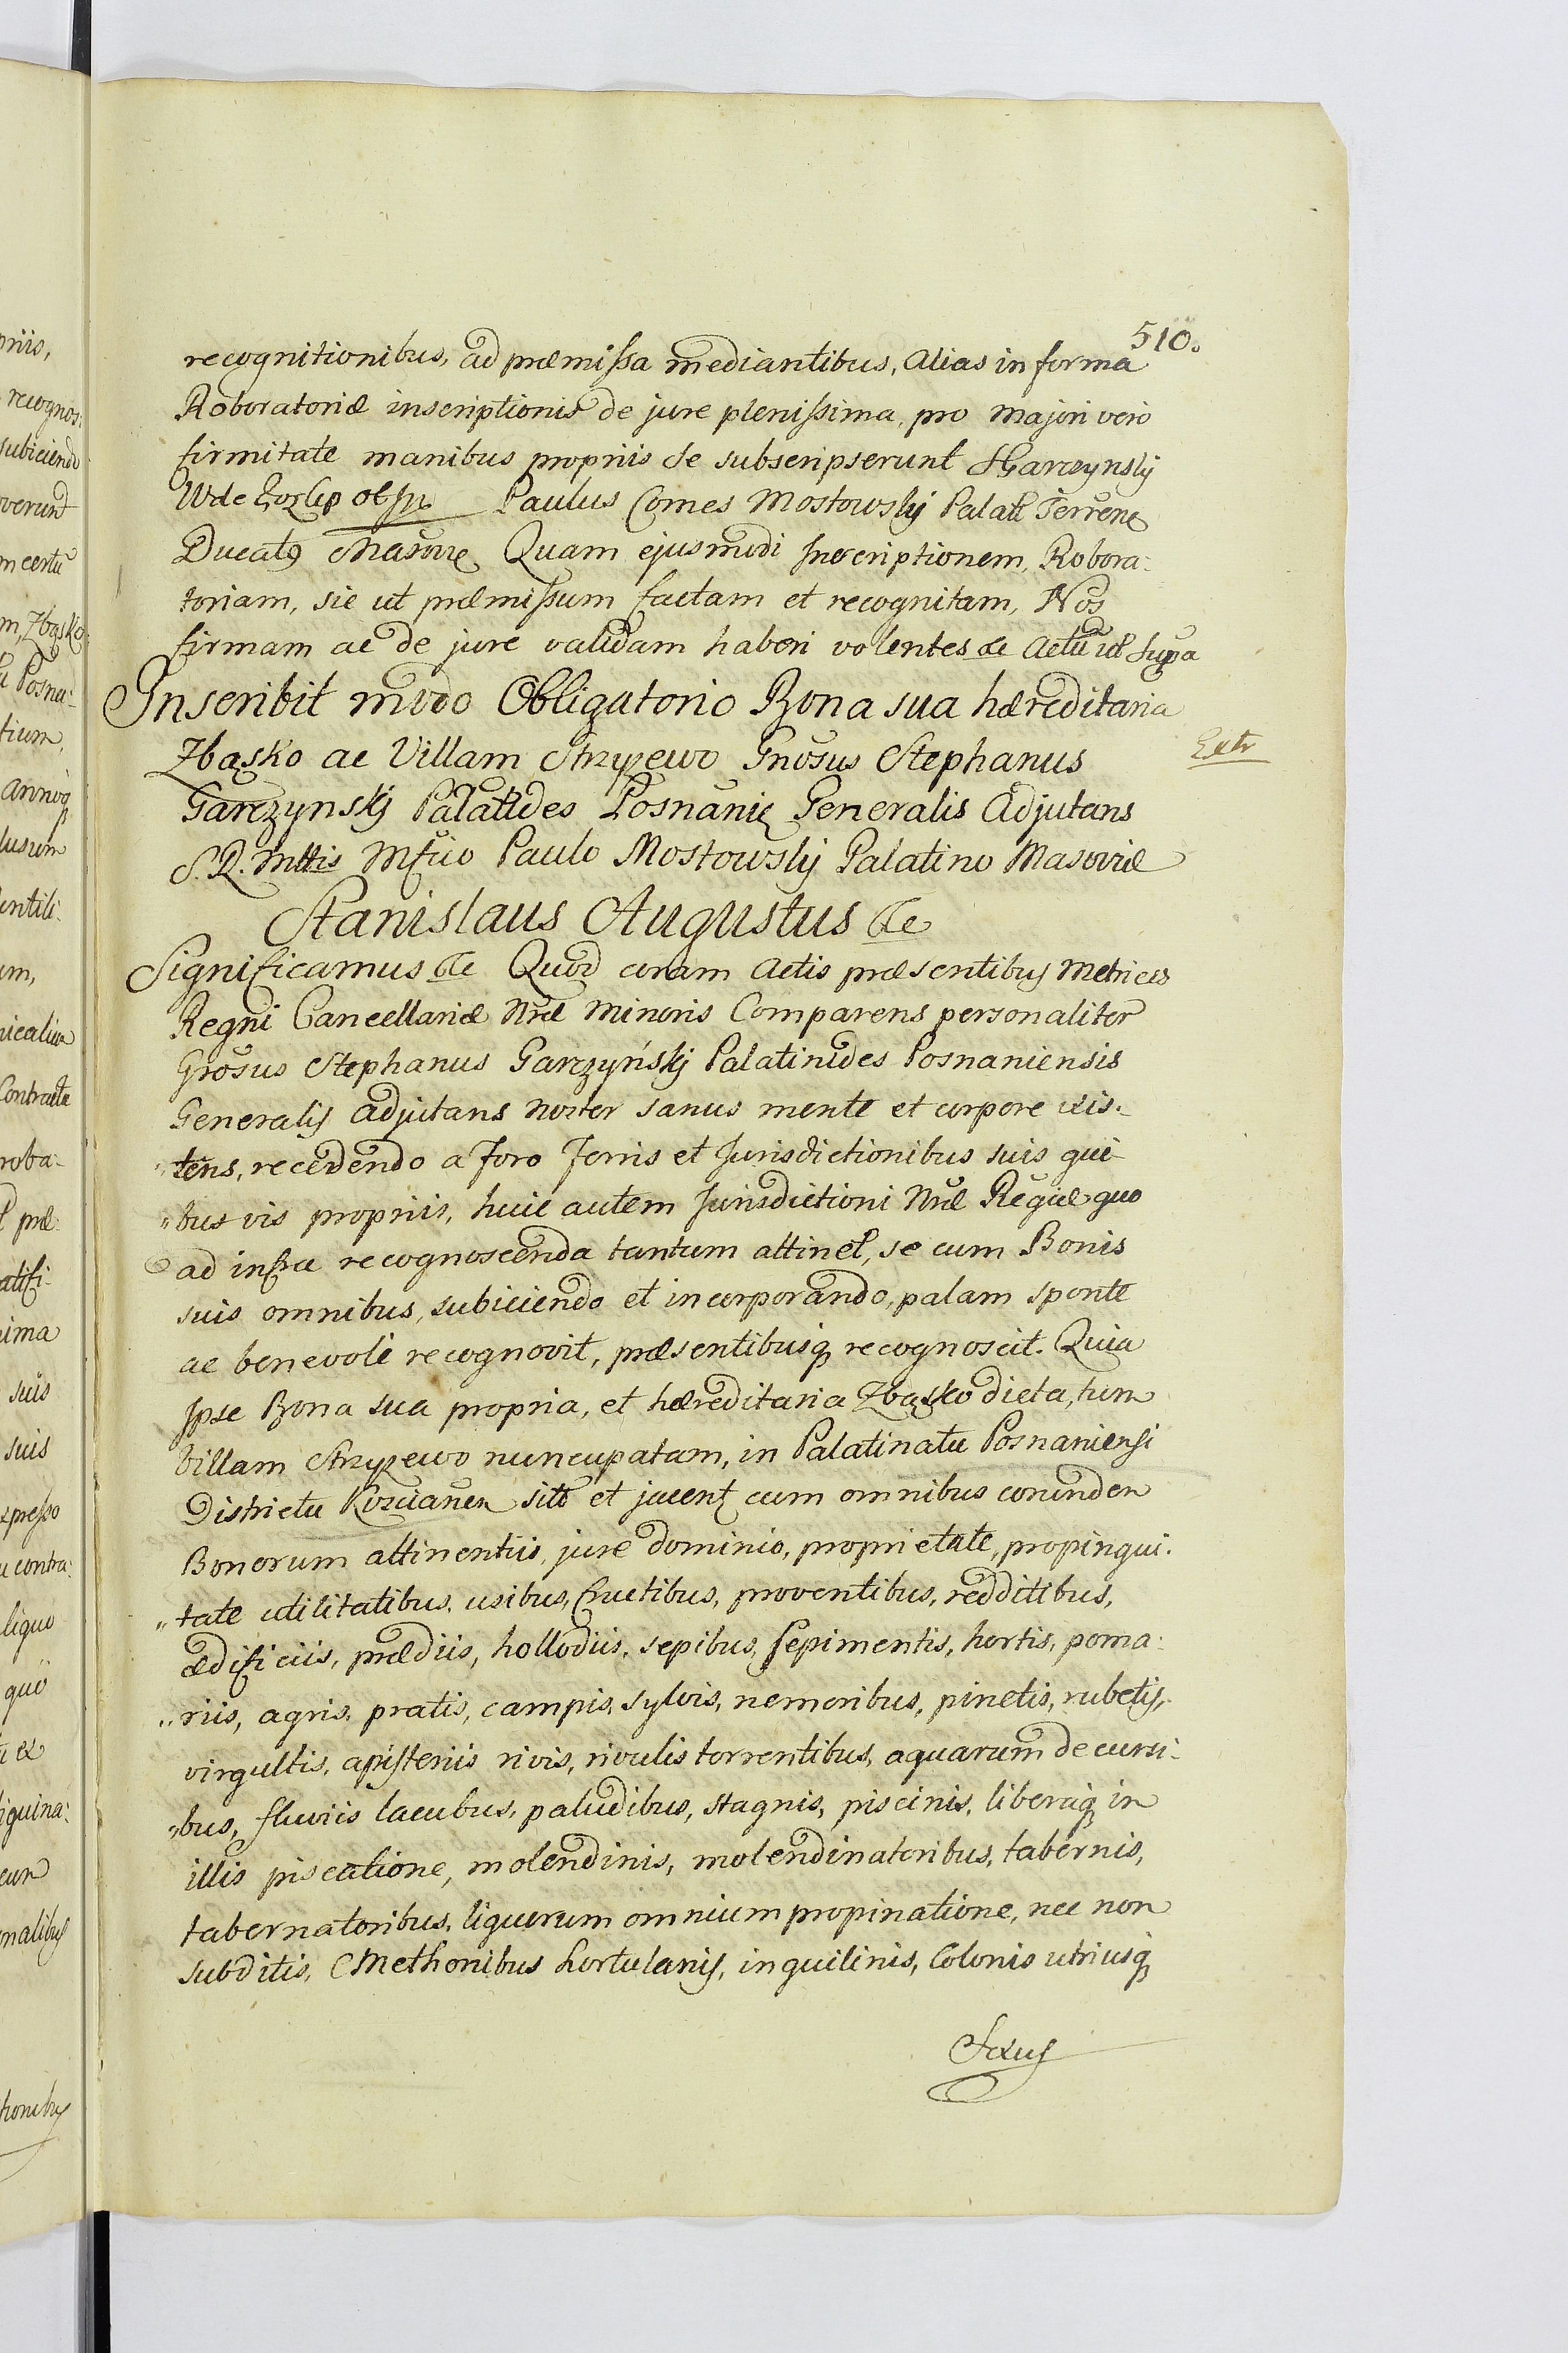 510.
recognitionibus, ad præmissa mediantibus, alias in forma
Roboratoriæ inscriptionis de jure plenissima, pro majori vero
firmitate manibus propriis se subscripserunt SGarczynskÿ
Paulus Comes Mostowskÿ Palat Terrene
Ducatq Masoviæ Quam ejusmodi Inscriptionem, Robora:
toriam, sic ut præmissum factam et recognitam, Nos
firmam ac de jure validam haberi volentes &c Actū ut supa
Inscribit modo Obligatorio Bona sua hæreditaria
Zbąsko ac Villam Strzyzewo Gnōsus Stephanus
Extr
Garczynskÿ Palatides Posnanię Generalis Adjutans
S. R. Mttis Mfico Paulo Mostowskÿ Palatino Masoviæ
Stanislaus Augustus &c
Significamus &c Quod coram Actis præsentibus Metrices
Regni Cancellariæ Nræ Minoris Comparens personaliter
Gnōsus Stephanus Garczyńskj Palatinides Posnaniensis
Generalis adjutans noster sanus mente et corpore exis-
"tens, recedendo a Foro Terris et Jurisdictionibus suis qui-
"bus vis propriis, huic autem Jurisdictioni Nræ Regiæ quo
ad infra recognoscenda tantum attinet, se cum Bonis
suis omnibus, subiciendo et incorporando, palam sponte
ac benevole recognovit, præsentibusq recognoscit. Quia
Ipse Bona sua propria, et hæreditaria Zbąsko dicta, tum
Villam Strzyzewo nuncupatam, in Palatinatu Posnaniensi
Districtu Koscianen sita et jacent cum omnibus eorunden
Bonorum attinentiis, jure dominio, proprietate, propinqui.
"tate utilitatibus, usibus, fructibus, proventibus, redditibus,
ædificiis, prædiis, hollodiis, sepibus, sepimentis, hortis, poma:
"riis, agris, pratis, campis, sylvis, nemoribus, pinetis, rubetis,
virgultis, apisteriis rivis, rivulis torrentibus, aquarum decursi-
"bus, fluviis lacubus, paludibus, stagnis, piscinis, liberaq in
illis piscatione, molendinis, molendinatoribus, tabernis,
tabernatoribus, liquorum omnium propinatione, nec non
subditis, Cmethonibus hortulanis, inquilinis, Colonis utriusq
Sexus